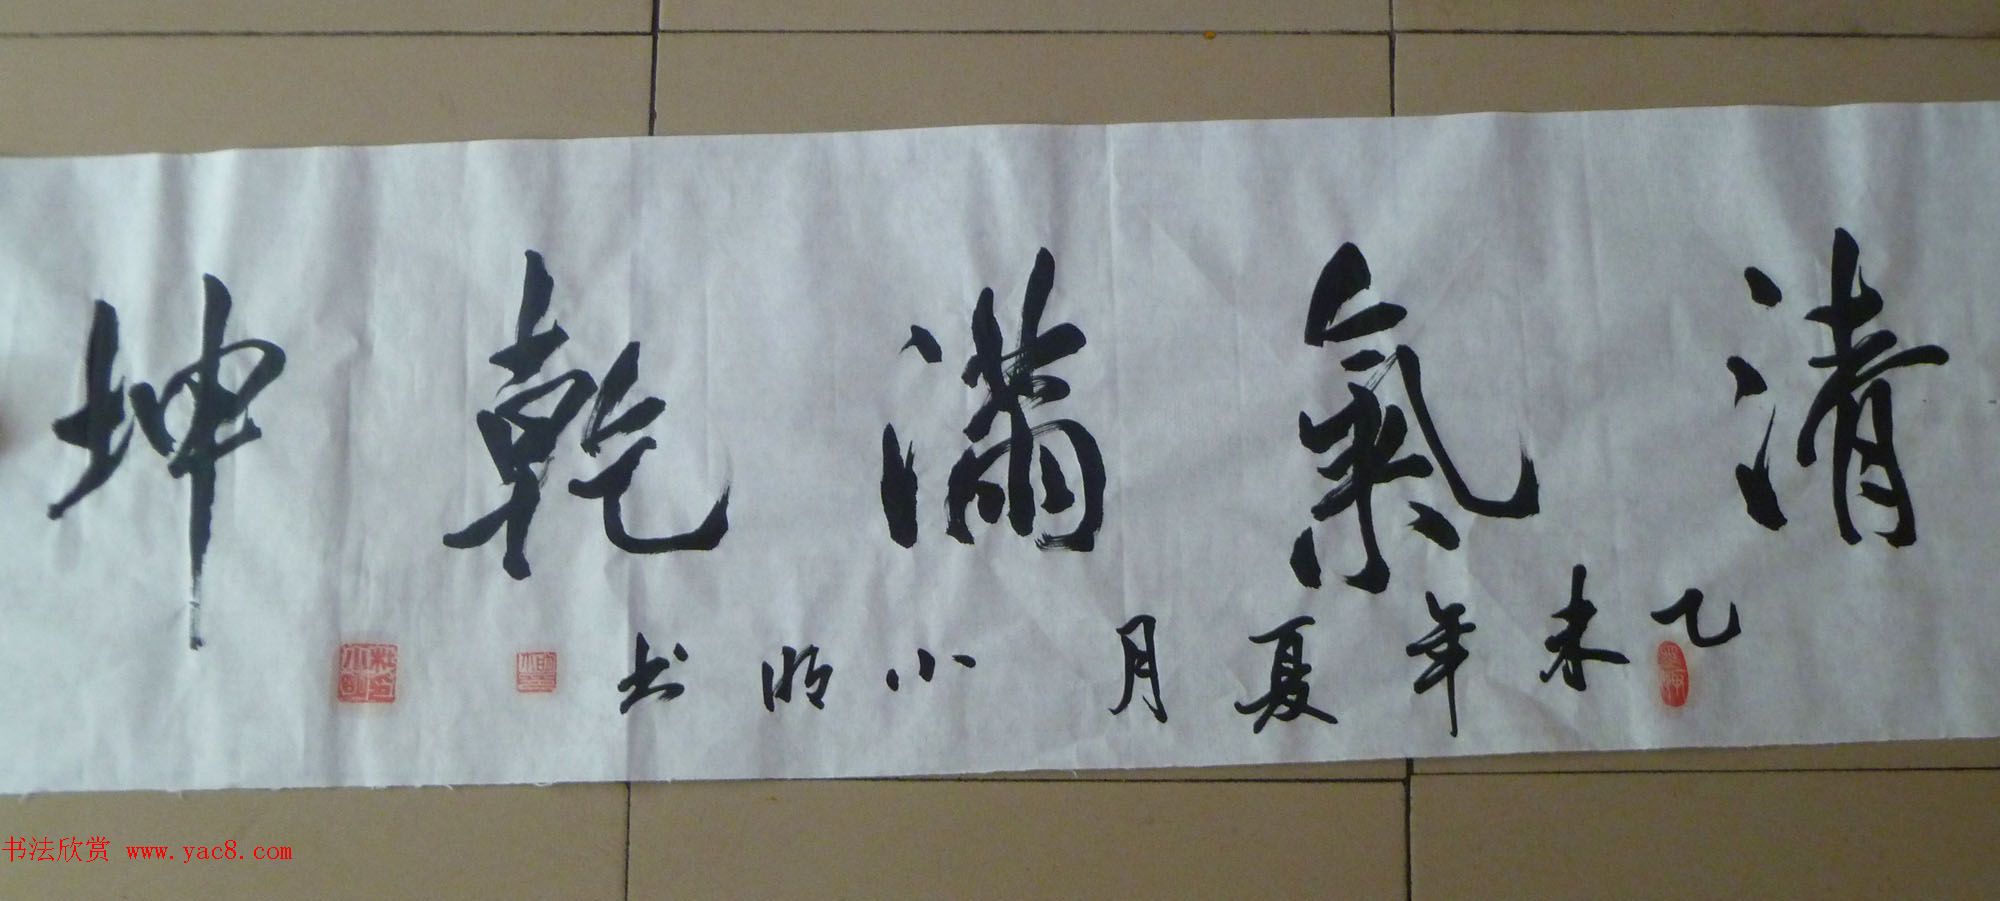 清氣滿乾坤
乙未年夏月 小明书
书法欣赏 www.yac8.com